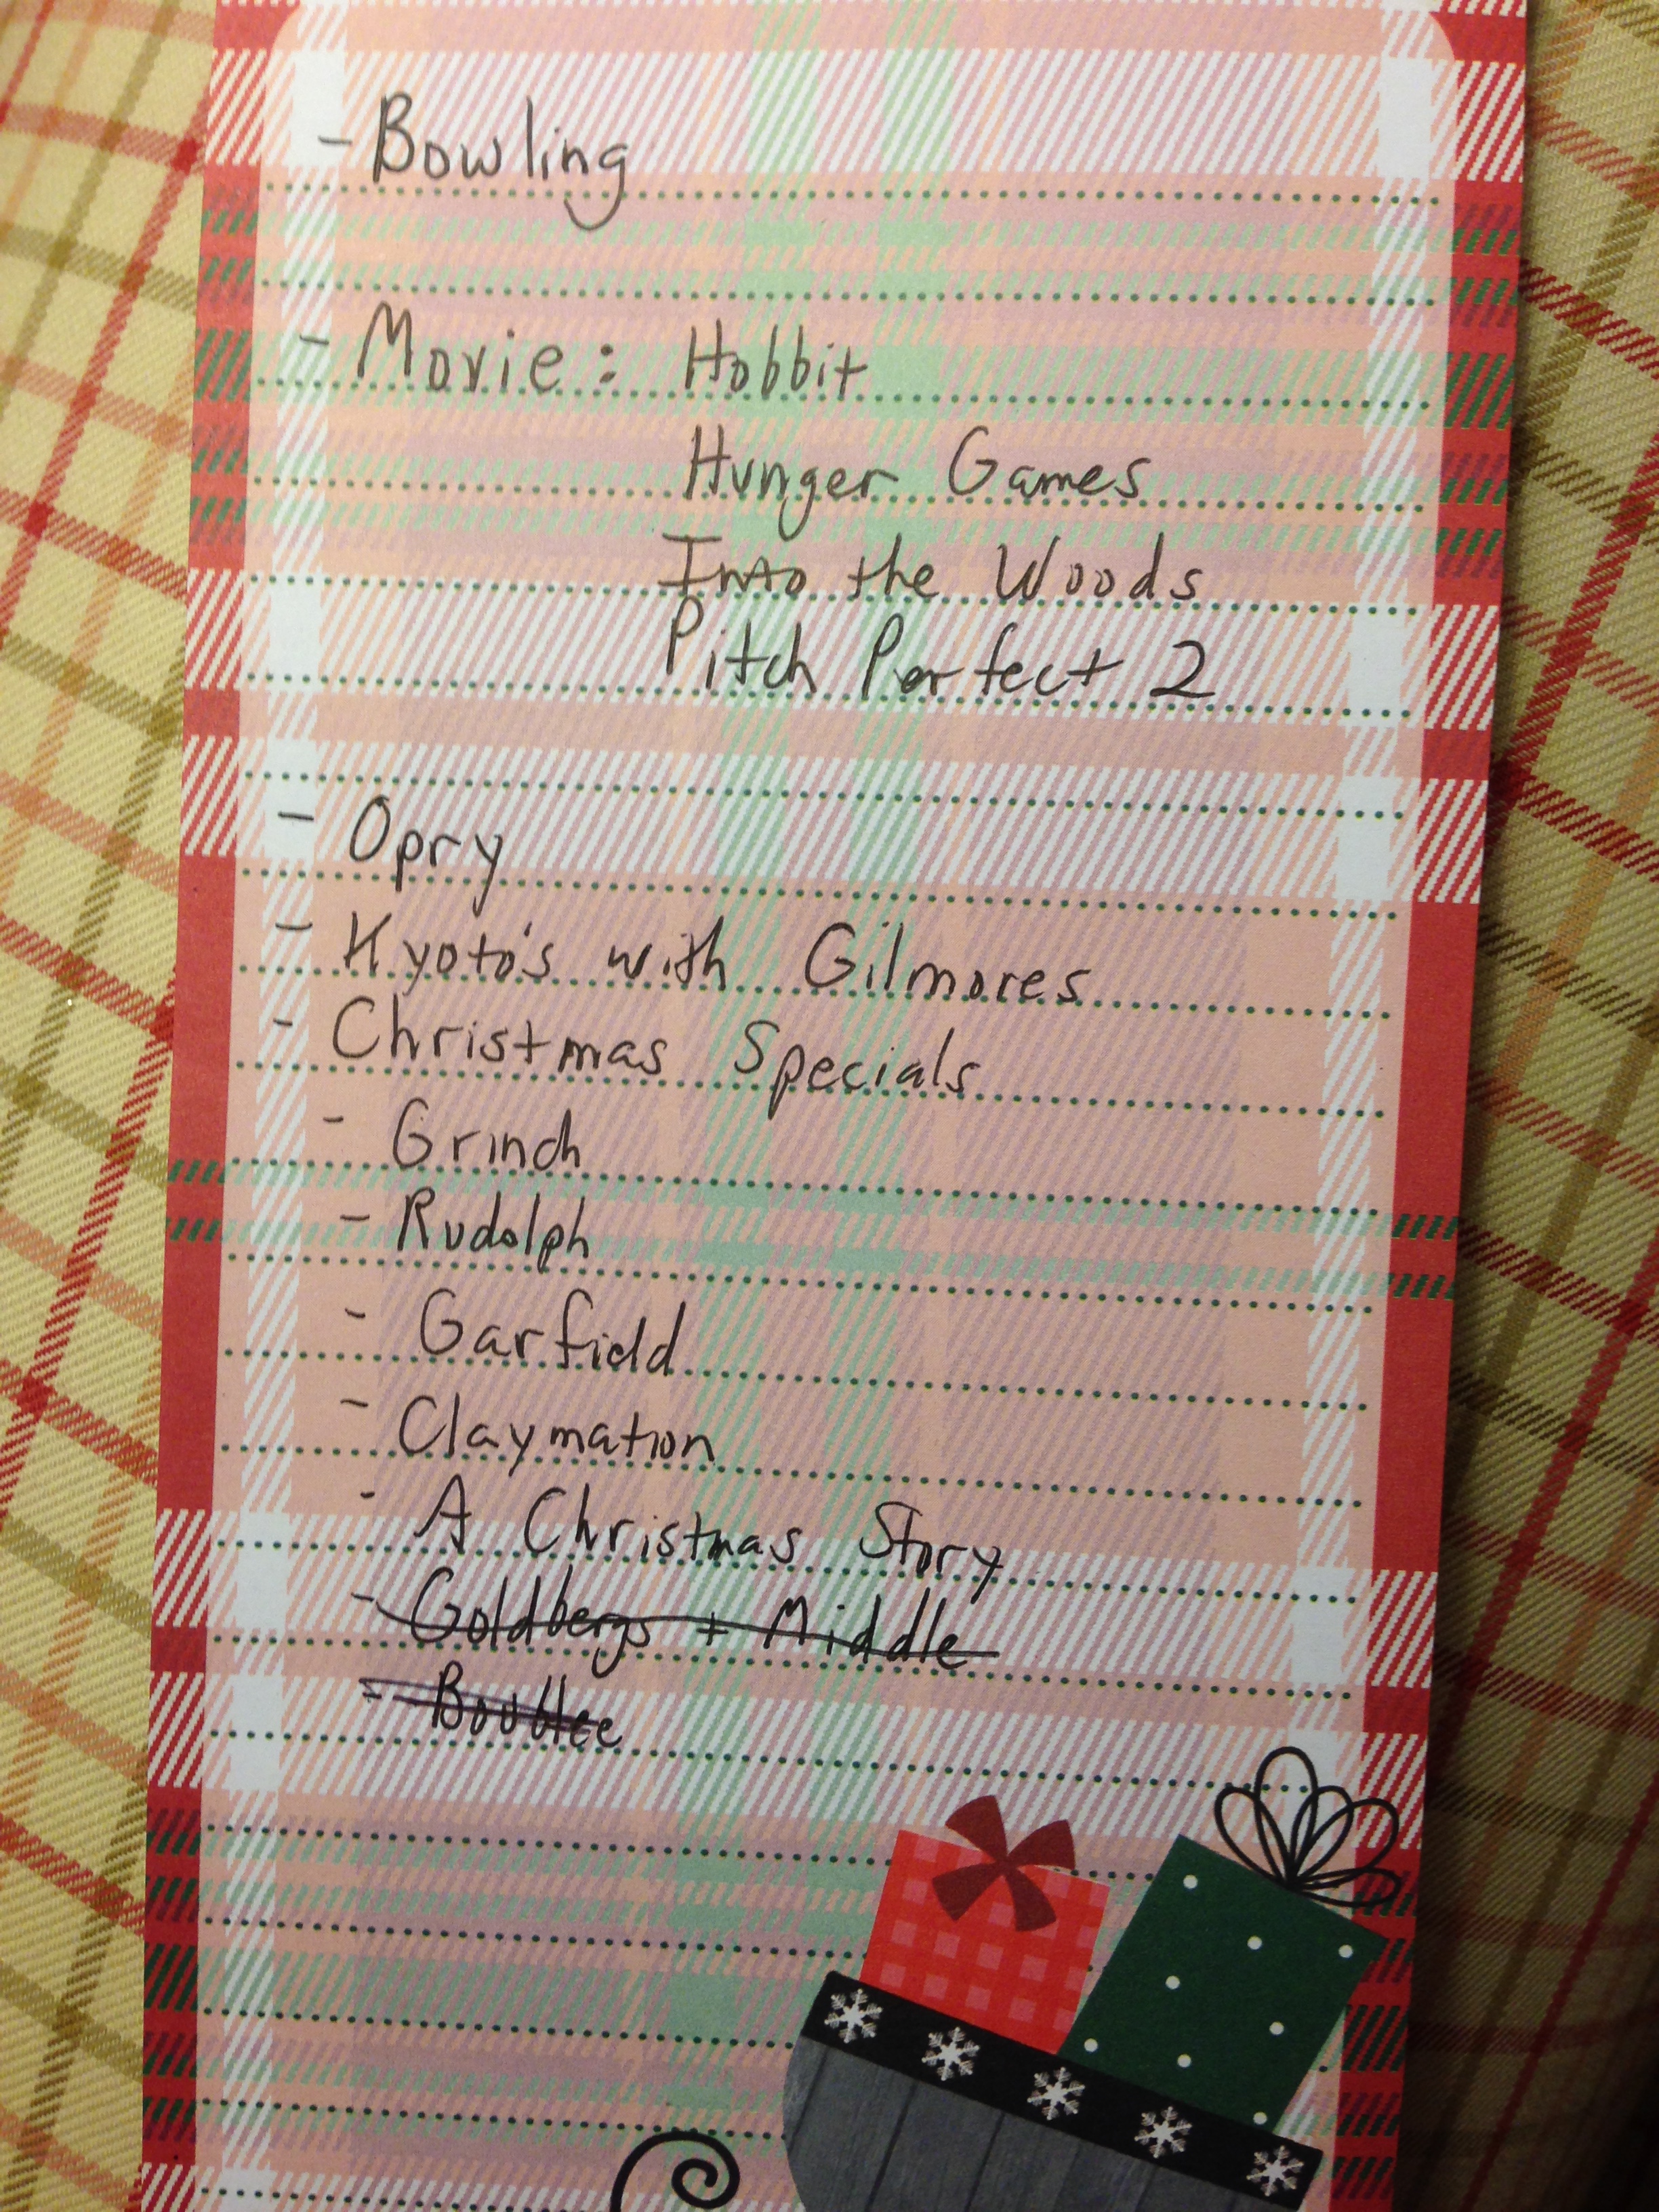 - Bowling
- Movie: Hobbit
Hunger Games
Into the Woods
Pitch Perfect 2
- Opry
- Kyoto's with Gilmores
- Christmas Specials
- Grinch
- Rudolph
- Garfield
- Claymation
- A Christmas Story
- Goldbergs + Middle
- Boublee